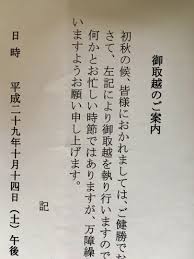 御取越のご案内
初秋の候、皆様におかれましては、ご健勝でお
さて、左記により御取越を執り行いますので
何かとお忙しい時節ではありますが、万障繰
いますようお願い申し上げます。
記
日時 平成二十九年十月十四日(土)午後